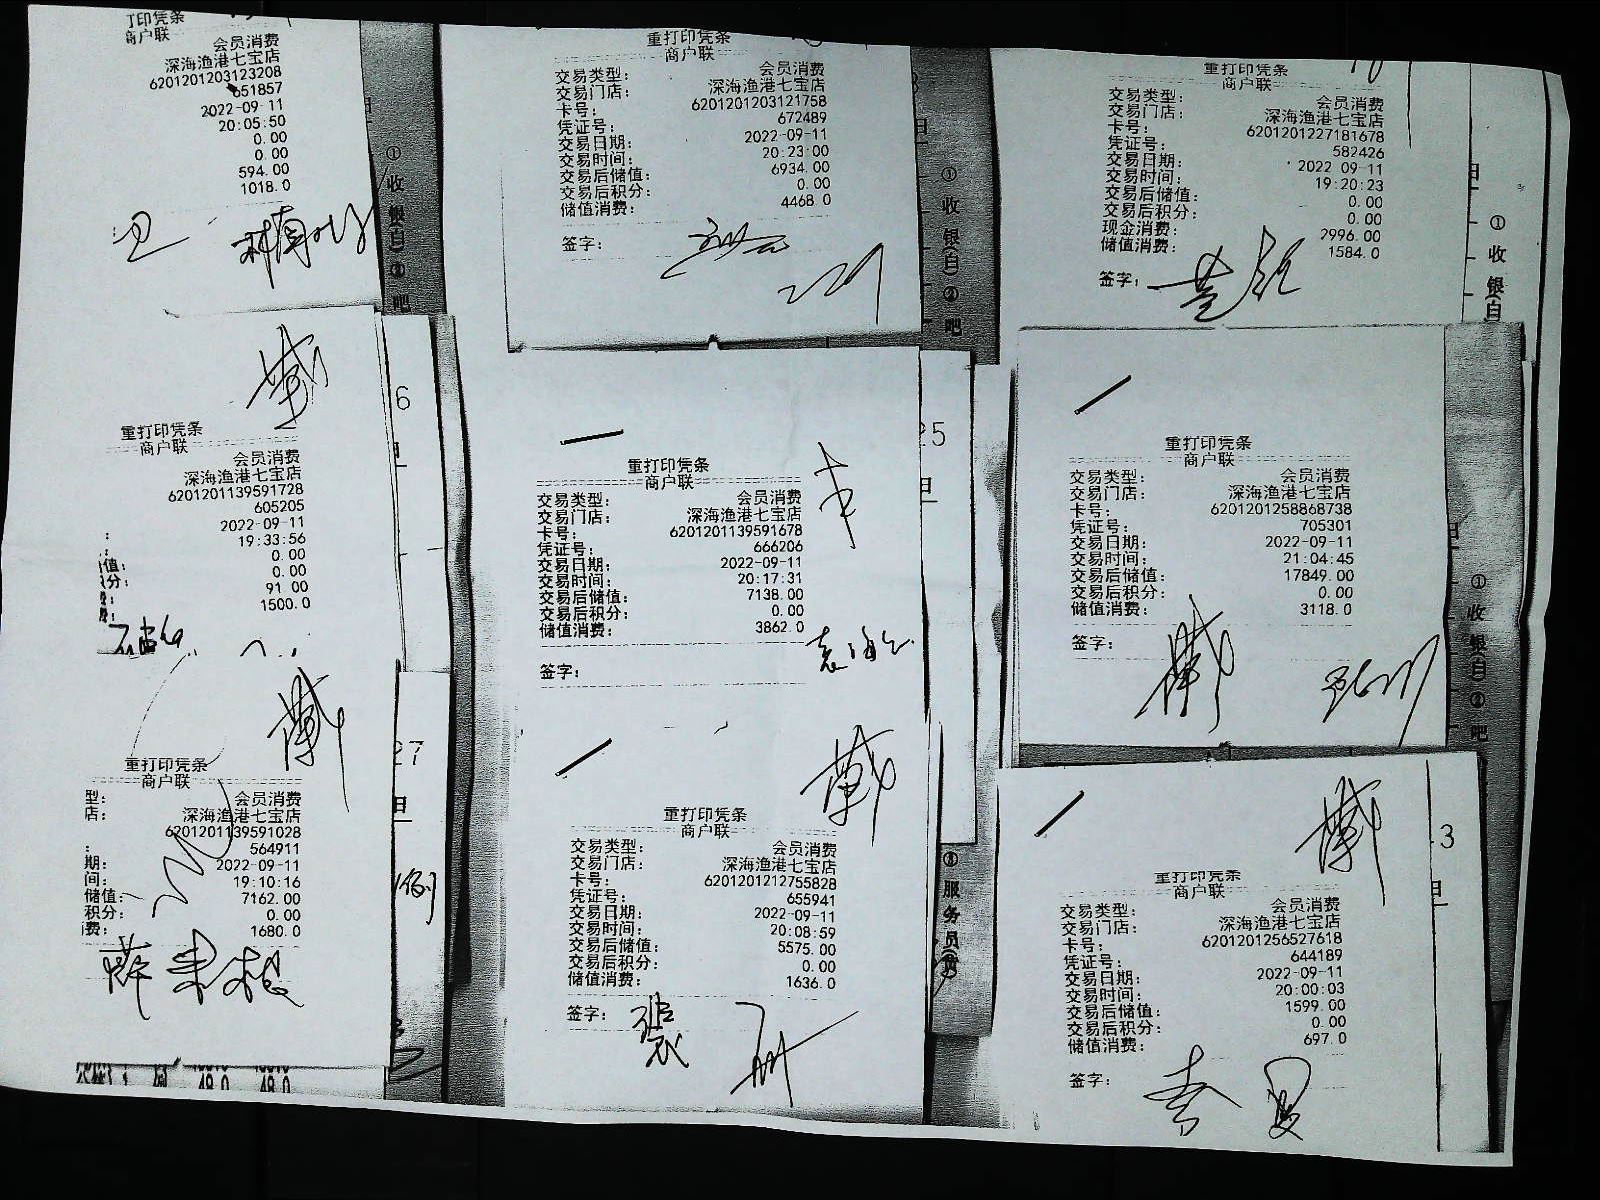 打印凭条
商户联
会员消费
深海渔港七宝店
6201201203123208
651857
2022-09-11
20:05:50
0.00
0.00
594.00
1018.0
重打印凭条
商户联
交易类型: 会员消费
交易门店: 深海渔港七宝店
卡号: 6201201203121758
凭证号: 672489
交易日期: 2022-09-11
交易时间: 20:23:00
交易后储值: 6934.00
交易后积分: 0.00
储值消费: 4468.0
签字:
重打印凭条
商户联
交易类型: 会员消费
交易门店: 深海渔港七宝店
卡号: 6201201227181678
凭证号: 582426
交易日期: 2022-09-11
交易时间: 19:20:23
交易后储值: 0.00
交易后积分: 0.00
现金消费: 2996.00
储值消费: 1584.0
签字:
①收银(白)②吧
①收银(白)②吧
①收银(白)
重打印凭条
商户联
会员消费
深海渔港七宝店
6201201139591728
605205
2022-09-11
: 19:33:56
值: 0.00
分: 0.00
91.00
1500.0
6
重打印凭条
商户联
交易类型: 会员消费
交易门店: 深海渔港七宝店
卡号: 6201201139591678
凭证号: 666206
交易日期: 2022-09-11
交易时间: 20:17:31
交易后储值: 7138.00
交易后积分: 0.00
储值消费: 3862.0
签字:
25
重打印凭条
商户联
交易类型: 会员消费
交易门店: 深海渔港七宝店
卡号: 6201201258868738
凭证号: 705301
交易日期: 2022-09-11
交易时间: 21:04:45
交易后储值: 17849.00
交易后积分: 0.00
储值消费: 3118.0
签字:
①收银(白)②吧
重打印凭条
商户联
型: 会员消费
店: 深海渔港七宝店
6201201139591028
: 564911
期: 2022-09-11
间: 19:10:16
储值: 7162.00
积分: 0.00
费: 1680.0
27
重打印凭条
商户联
交易类型: 会员消费
交易门店: 深海渔港七宝店
卡号: 6201201212755828
凭证号: 655941
交易日期: 2022-09-11
交易时间: 20:08:59
交易后储值: 5575.00
交易后积分: 0.00
储值消费: 1636.0
签字:
③服务员
重打印凭条
商户联
交易类型: 会员消费
交易门店: 深海渔港七宝店
卡号: 6201201256527618
凭证号: 644189
交易日期: 2022-09-11
交易时间: 20:00:03
交易后储值: 1599.00
交易后积分: 0.00
储值消费: 697.0
签字:
3
48.0 48.0